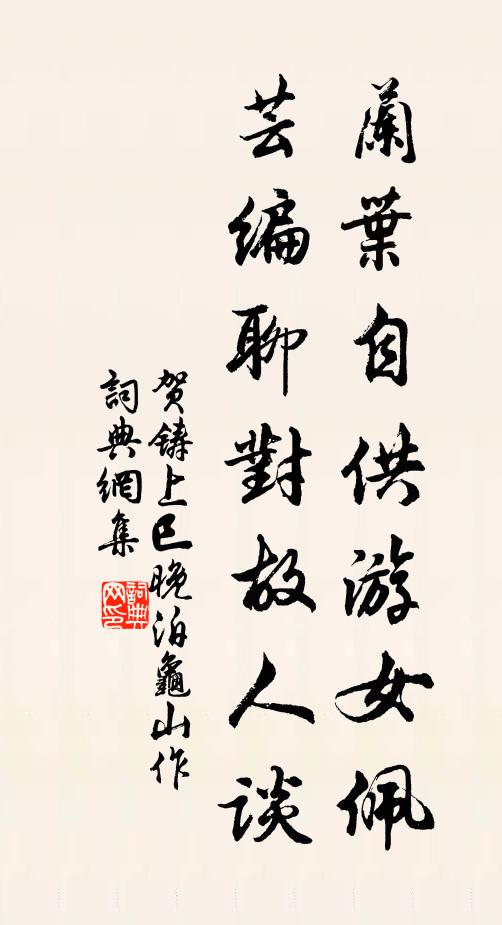 蘭葉自供游女佩
芸编聊對故人谈
贺鑄上巳晚泊龜山作
詞典網集
詞典网印